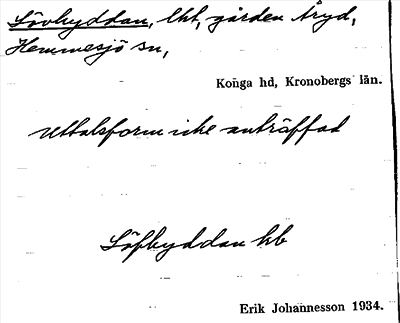 Lövhyddan, lht, gården Åryd,
Hemmesjö sn,
Konga hd, Kronobergs län.
uttalsform icke anträffad
Löfhyddan kb
Erik Johannesson 1934.